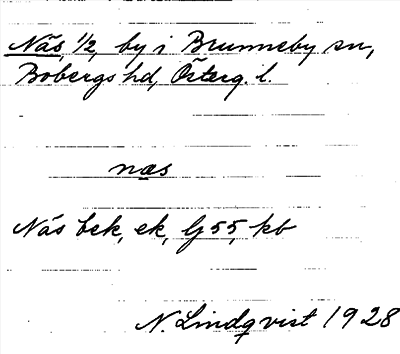 Näs, 1/2, by i Brunneby sn,
Bobergs hd, Österg. l.
næs
Näs bek, ek, lj 55, kb
N. Lindqvist 1928